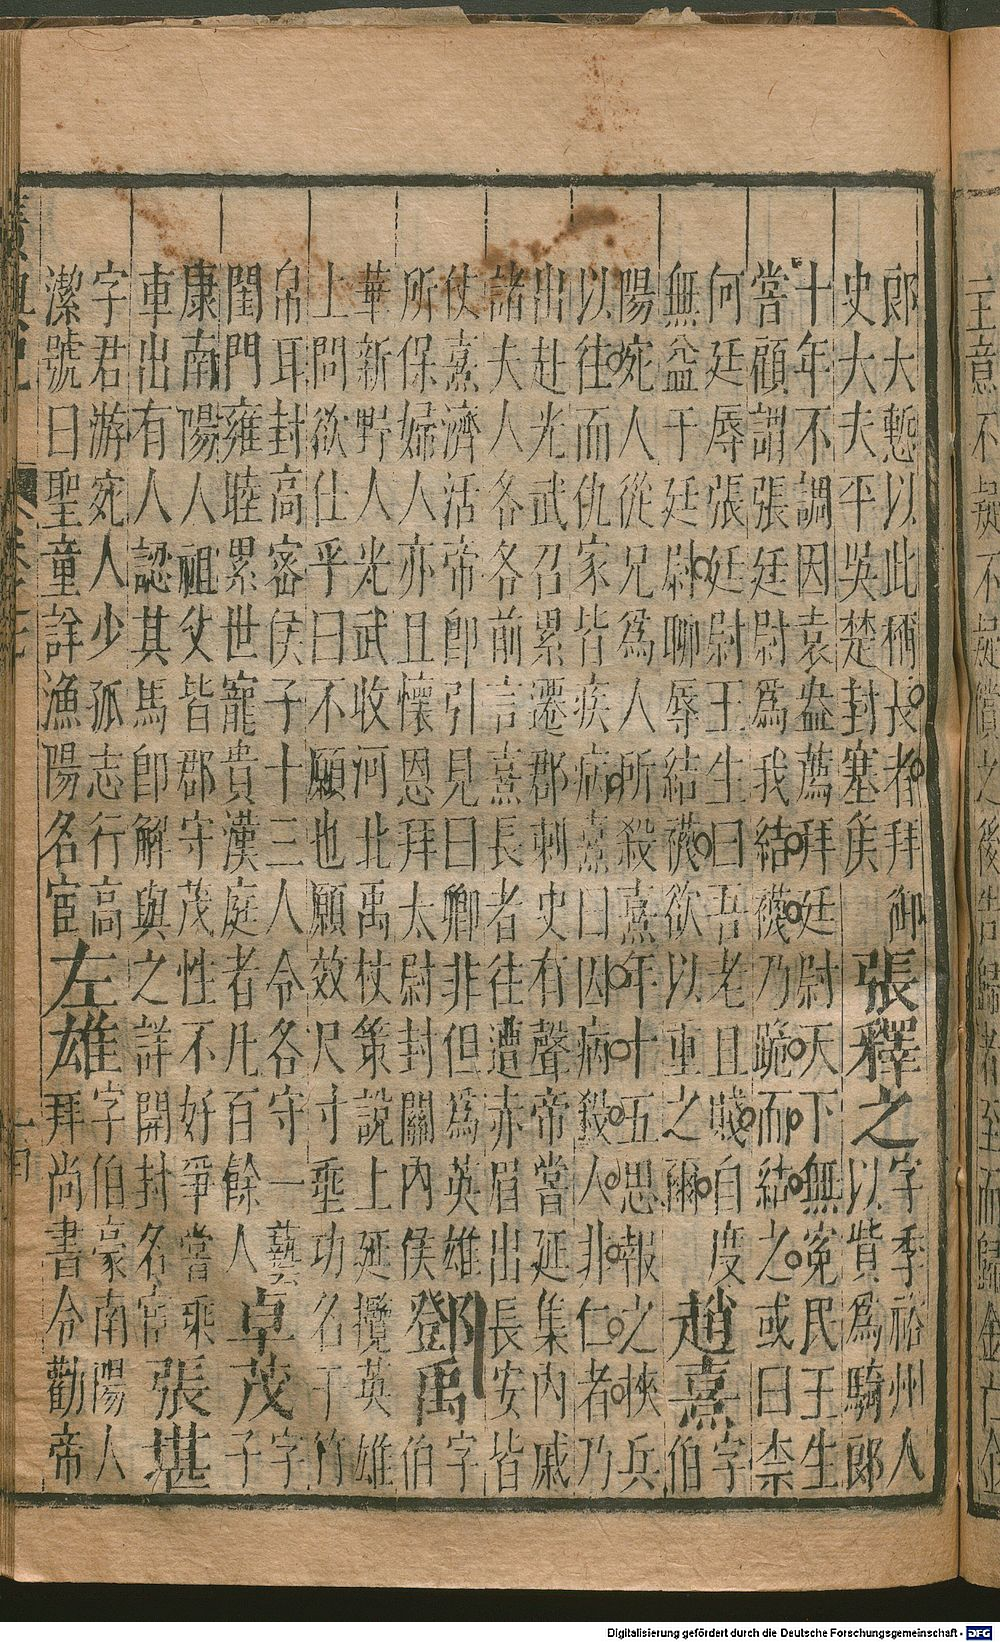 主意不疑不疑償之後告歸者至而歸金亡金
郎大慙以此稱長者拜御
史大夫平吳楚封塞侯
張釋之
字季裕州人
以貲為騎郎
十年不調因袁盎薦拜廷尉天下無冤民王生
嘗顧謂張廷尉為我結襪乃跪而結之或曰柰
何廷辱張廷尉王生曰吾老且賤自度
無益于廷尉聊辱結襪欲以重之爾
趙熹
字
伯
陽宛人從兄為人所殺熹年十五思報之挾兵
以往而仇家皆疾病熹曰因病殺人非仁者乃
出赴光武召累遷郡刺史有聲帝嘗延集內戚
諸夫人各各前言熹長者往遭赤眉出長安皆
仗熹濟活帝即引見曰卿非但為英雄
所保婦人亦且懷恩拜太尉封關內侯
鄧禹
字
伯
華新野人光武收河北禹杖策說上延攬英雄
上問欲仕乎曰不願也願效尺寸垂功名于竹
帛耳封高密侯子十三人令各守一藝
閨門雍睦累世寵貴漢庭者凡百餘人
卓茂
字
子
康南陽人祖父皆郡守茂性不好爭嘗乘
車出有人認其馬即解與之詳開封名宦
張堪
字君游宛人少孤志行高
潔號曰聖童詳漁陽名宦
左雄
字伯豪南陽人
拜尚書令勸帝
Digitalisierung gefördert durch die Deutsche Forschungsgemeinschaft - DFG